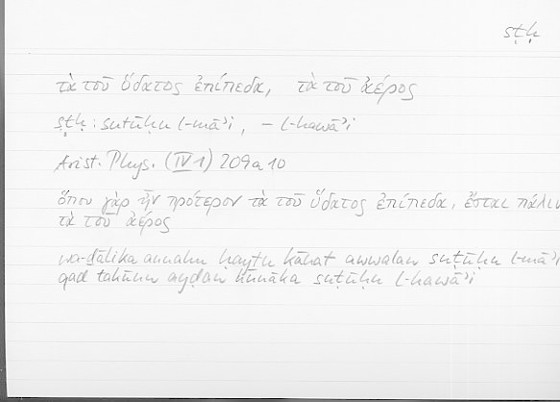 sṭḥ
τὰ τοῦ ὕδατος ἐπίπεδα, τὰ τοῦ ἀέρος
sṭḥ: suṭūḥu l-māʾi, – l-hawāʾi
Arist. Phys. (IV 1) 209a10
ὅπου γὰρ ἦν πρότερον τὰ τοῦ ὕδατος ἐπίπεδα, ἔσται πάλιν
τὰ τοῦ ἀέρος
wa-ḏālika annahu ḥayṯu kānat awwalan suṭūḥu l-māʾi
qad takūnu ayḍan hunāka suṭūḥu l-hawāʾi